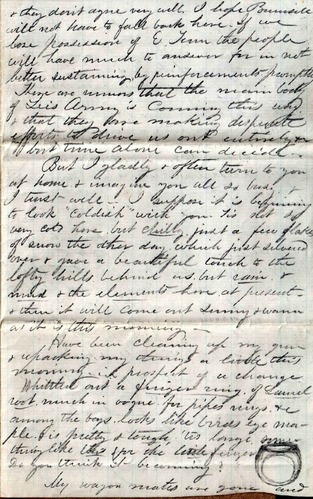 & they don't agree very well. I hope Burnside
will not have to fall back here. If we
lose possession of E. Tenn the people
will have much to answer for in not
better sustaining by reinforcements promptly
There are rumors that the main body
of Lee's Army is coming this way
& that they are making desperate
efforts to drive us out entirely
but time alone can decide.
But I gladly & often turn to you
at home & imagine you all so busy
I trust well. I suppose it is beginning
to look "coldish" with you. Tis not so
very cold here, but chilly, just a few flakes
of snow the other day, which just silvered
over & gave a beautiful touch to the
lofty hills behind us, but rain
mud & the elements here at present
& then it will come out sunny & warm
as it is this morning —
Have been cleaning up my gun
& repacking my things a little this
morning in prospect of a change
Whittled out a finger ring of Laurel
root much in vogue for pipes rings &c
among the boys. looks like birds eye ma-
ple. is pretty & tough, tis large, some-
thing like this for the little finger
Do you think it becoming?
My wagon mates are gone and